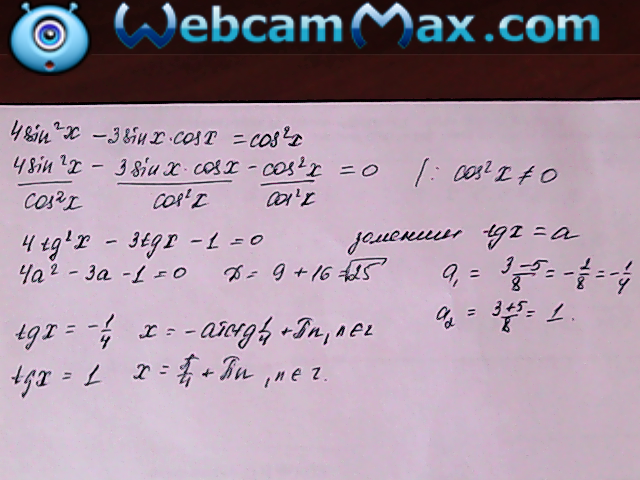 WebcamMax.com
4sin²x - 3sinx·cosx = cos²x
4sin²x/cos²x - 3sinx·cosx/cos²x - cos²x/cos²x = 0 /: cos²x ≠ 0
4tg²x - 3tgx - 1 = 0 заменим tgx = a
4a² - 3a - 1 = 0 D = 9 + 16 = √25 a₁ = 3-5/8 = -2/8 = -1/4
a₂ = 3+5/8 = 1.
tgx = -1/4 x = -arctg 1/4 + πn, n∈z
tgx = 1 x = π/4 + πn, n∈z.